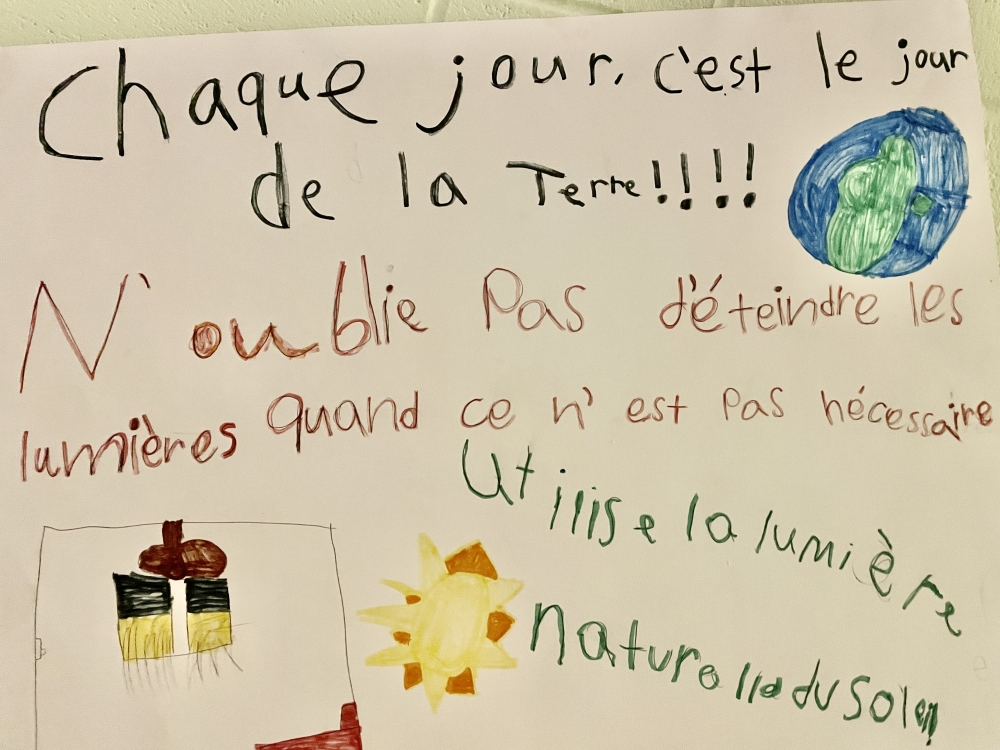 Chaque jour, c'est le jour
de la Terre!!!!
N'oublie Pas d'éteindre les
lumières quand ce n'est pas nécessaire
Utilise la lumière
naturelle du